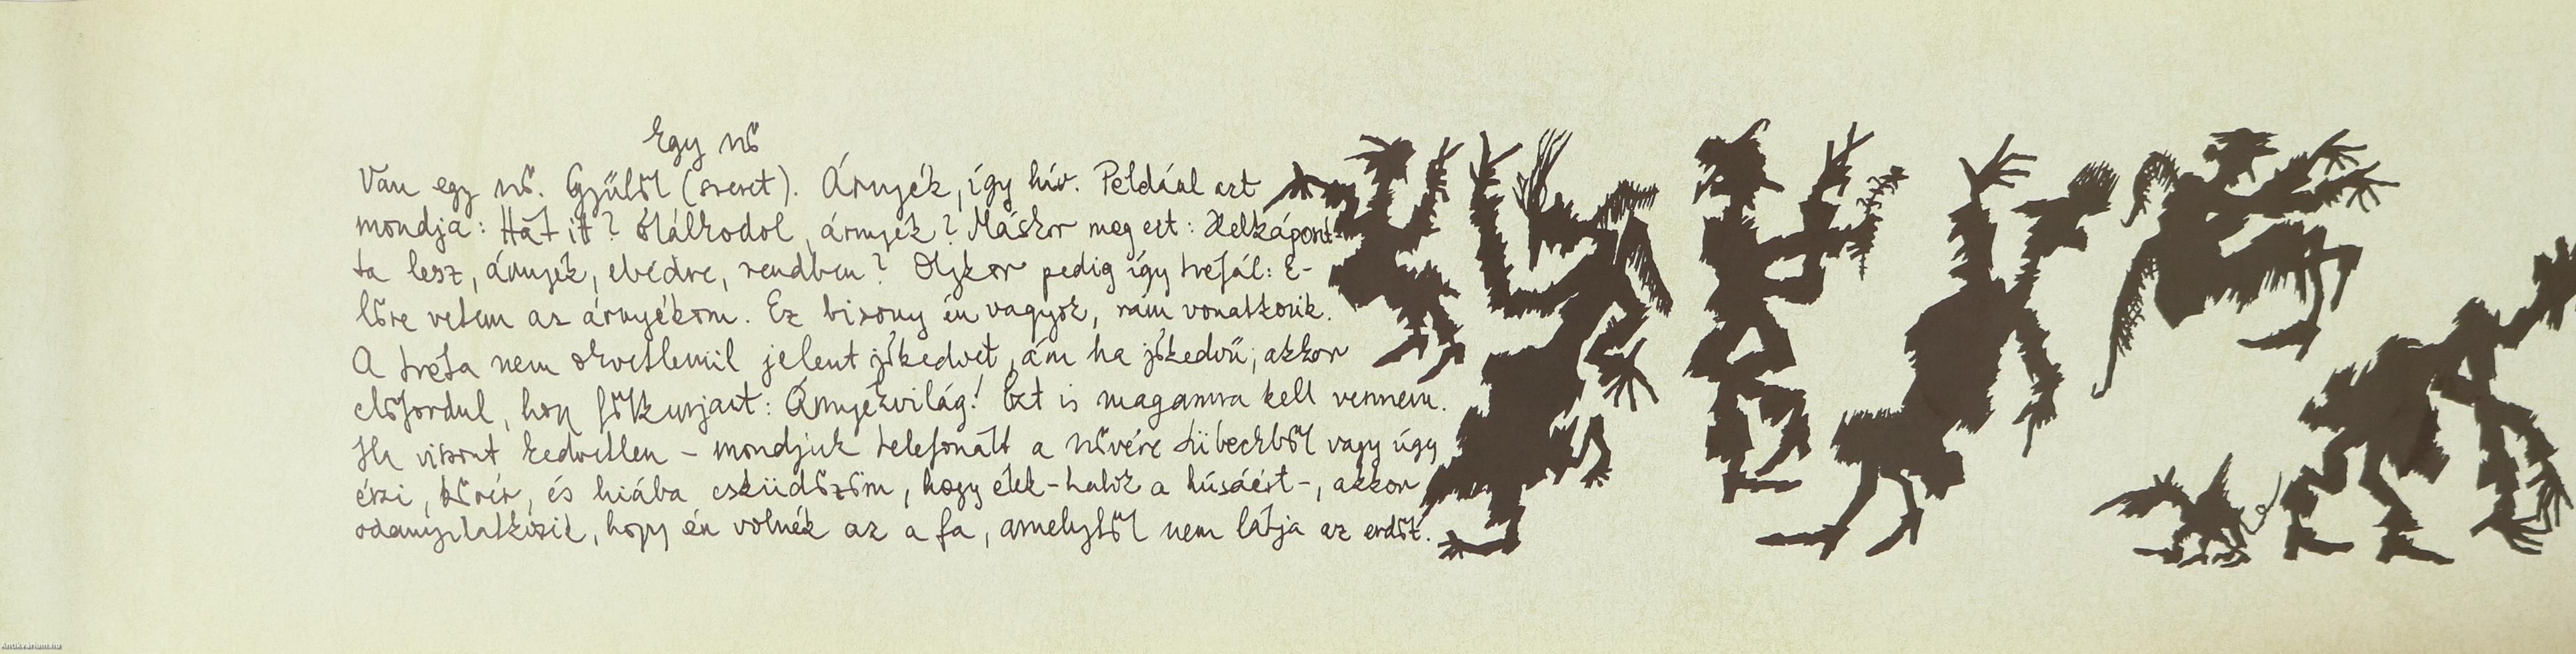 Egy nő
Van egy nő. Gyűlöl (szeret). Árnyék, így hív. Például ezt
mondja: Hát itt ólálkodol, árnyék? Máskor meg ezt: Zellkáposz-
ta lesz, árnyék, ebédre, rendben? Olykor pedig így tréfál: E-
lőre vetem az árnyékom. Ez bizony én vagyok, rám vonatkozik.
A tréfa nem okvetlenül jelent jókedvet, ám ha jókedvű, akkor
előfordul, hogy fölkurjant: Árnyékvilág! Ezt is magamra kell vennem.
Ha viszont kedvetlen - mondjuk telefonált a nővére Lübeckből vagy úgy
érzi, kövér, és hiába esküdözöm, hogy élek-halok a húsáért -, akkor
odanyilatkozik, hogy én volnék az a fa, amelytől nem látja az erdőt.
Antikvarium.hu